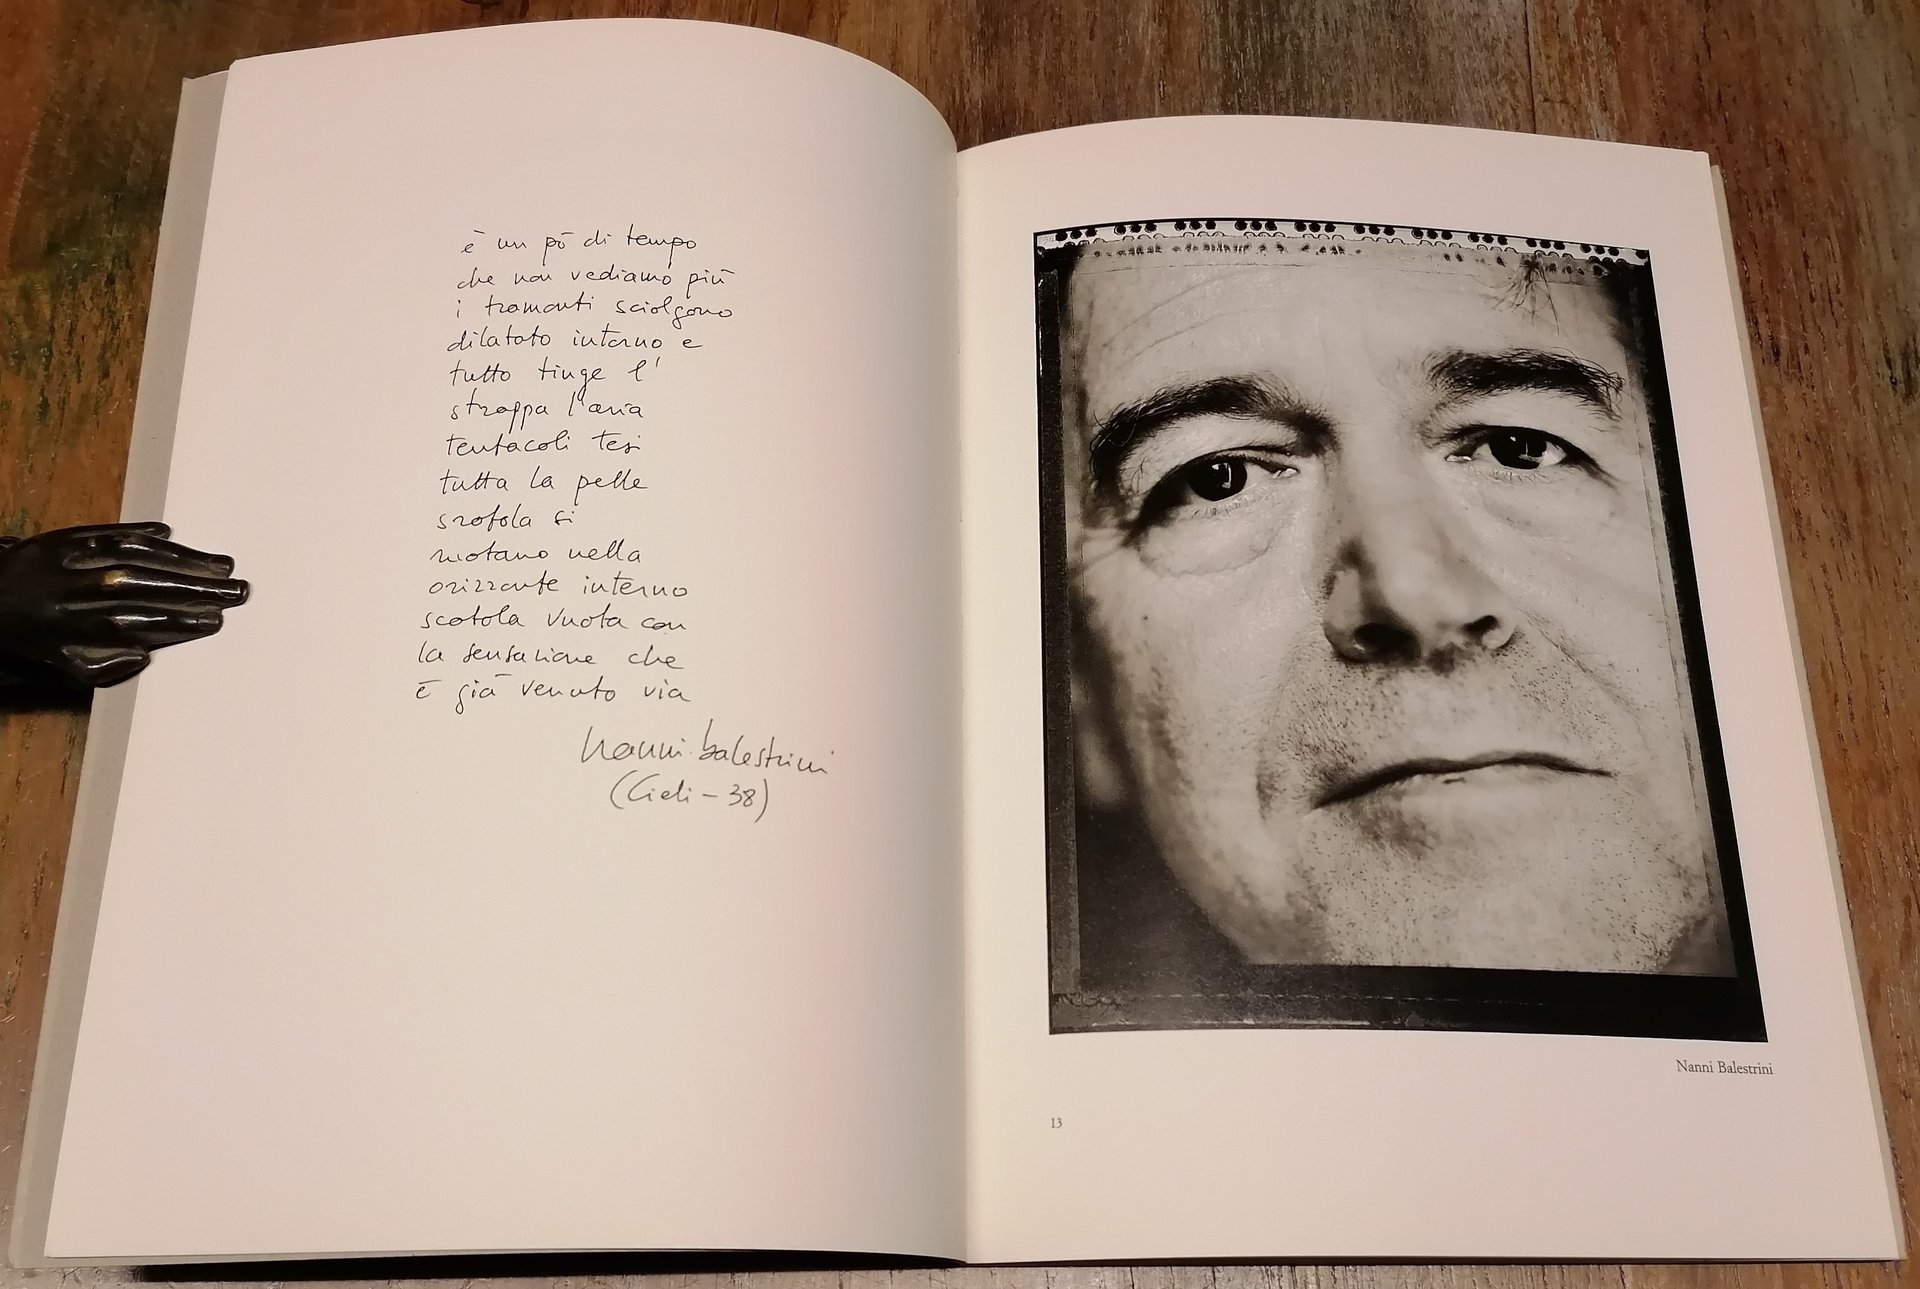 è un pò di tempo
che non vediamo più
i tramonti sciolgono
dilatato interno e
tutto tinge l'
strappa l'aria
tentacoli tesi
tutta la pelle
srotola si
ruotano nella
orizzonte interno
scatola vuota con
la sensazione che
è già venuto via
nanni balestrini
(Cieli - 38)
Nanni Balestrini
13